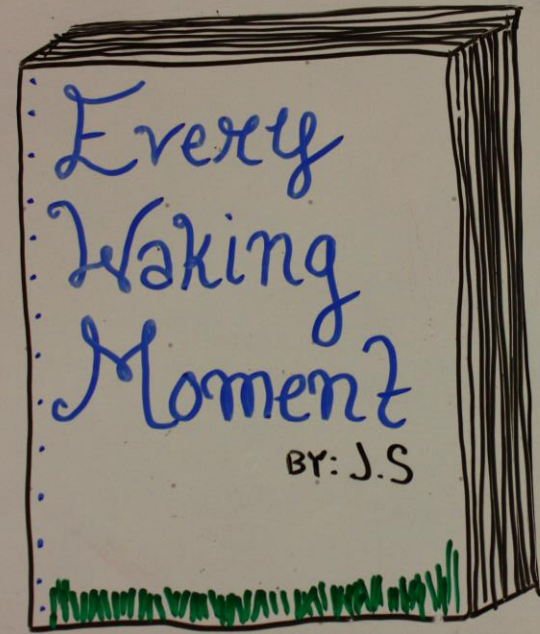 Every
Waking
Moment
BY: J.S